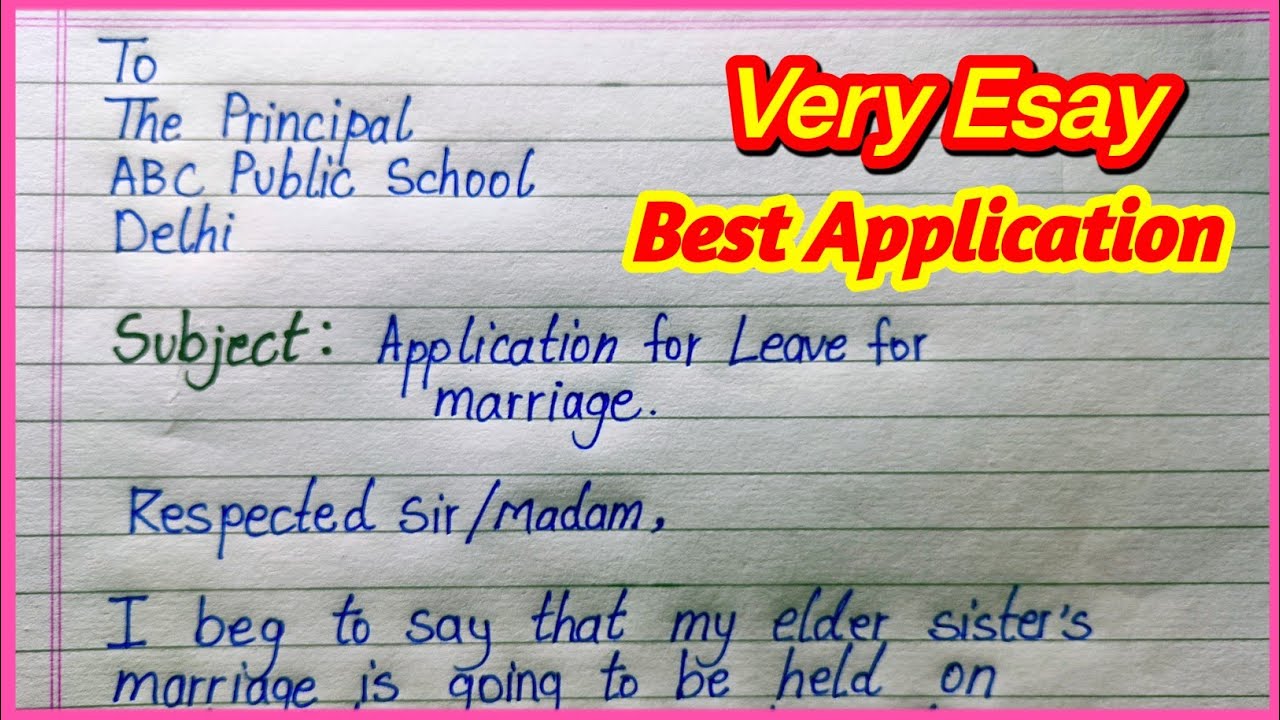 To
The Principal
ABC Public School
Delhi
Very Esay
Best Application
Subject: Application for Leave for
marriage.
Respected Sir/Madam,
I beg to say that my elder sister's
marriage is going to be held on